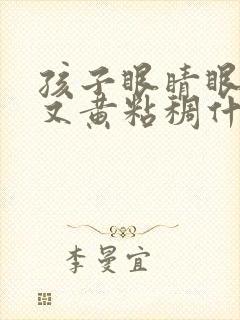 孩子眼睛眼
又黄粘稠什
李曼宜